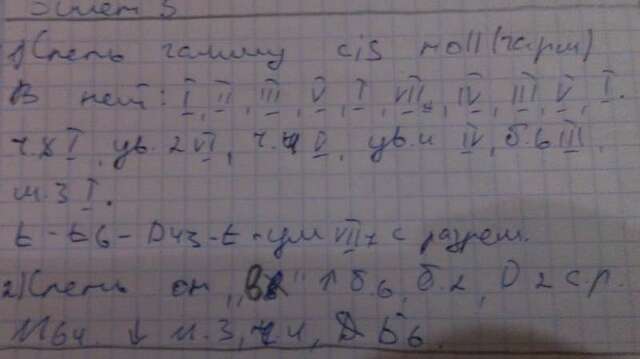 Билет 5
1) Спеть гамму cis moll (гарм)
В ней: I, II, III, V, I, VII, IV, III, V, I.
ч.8 I, ув.2 VI, ч.4 V, ув.4 IV, б.6 III,
м.3 I.
t - t6 - D43 - t - ум VII7 с разреш.
2) Спеть от „ " ↑ б.6, б.2, D2 с р.
М64 ↓ м.3, ч4, Б6.